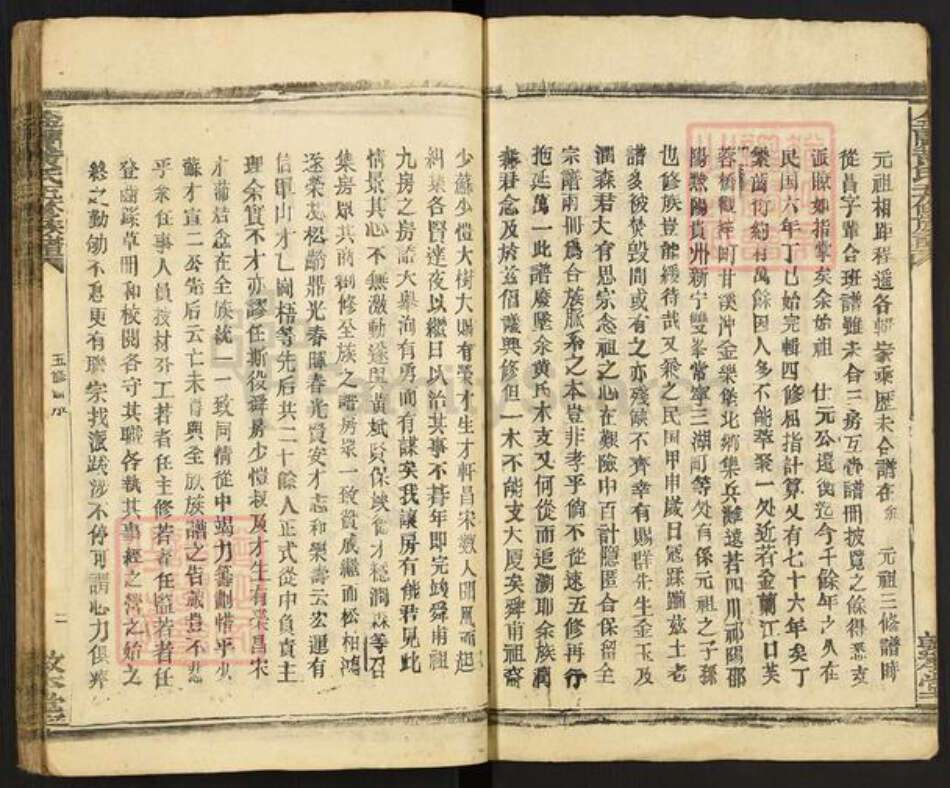 元祖相距程遥各輯家乘歷未合譜在余 元祖三修譜時
從昌字輩合班譜雖未合三房互 譜冊披覽之餘得悉支
派瞭如指掌矣余始祖 仕元公還衡迄今千餘年之久在
民国六年丁巳始完輯四修屈指計算又有七十六年矣丁
繁 衍約有萬餘因人多不能萃聚一处近若金蘭江口芙
蓉橋觀祥町甘溪沖金樂堡北鄉集兵灘遠若四川祁陽邵
陽 陽貴州新宁雙峯常寧三湖町等处有係元祖之子孫
也修族豈能緩待哉又乘之民国甲申歲日冦蹂躏兹土老
譜多被焚毀間或有之亦残缺不齊幸有賜群先生金玉及
潤森君大有思宗念祖之心在艱險中百計隱匿合保留全
宗譜兩冊爲合族脈系之本豈非孝乎倘不從速五修再行
抱延萬一此譜廢墜余黄氏木支又何從而追溯耶余族潤
森君念及於兹倡議興修但一木不能支大厦矣舜甫祖裔
少蘇少愷大樹大賜有榮才生才軒昌宋数人聞風而起
糾集各賢達夜以繼日以治其事不朞年即完竣舜甫祖
九房之房譜大舉洵有勇而有謀矣我讓房有能君見此
情景其心不無激動遂與黄斌賢保竣 才穏潤森等召
集房眾共商創修全族之譜房眾一致贊成繼而松柏鴻
遂榮茂松 鼎光春暉春光賢安才志和樂壽云宏運有
信軍山才 国梧等先后共二十餘人正式從中負責主
理余資不才亦謬任斯役舜房少愷叔及才生有榮昌宋
才蒲焙盒在全族統一一致同情從中竭力籌劃惜乎少
蘇才宣二公先后云亡未 與全成族譜之告蕆豈不悲
乎余任事人員按材分工若者任主修若者任監若者任
登 謄草冊和校閱各守其職各執其事經之營之始之
終之勤劬不息更有聯宗找派跋涉不停可謂心力俱瘁
五修 序
二
敦本堂
金蘭黄氏五修族譜
敦本堂